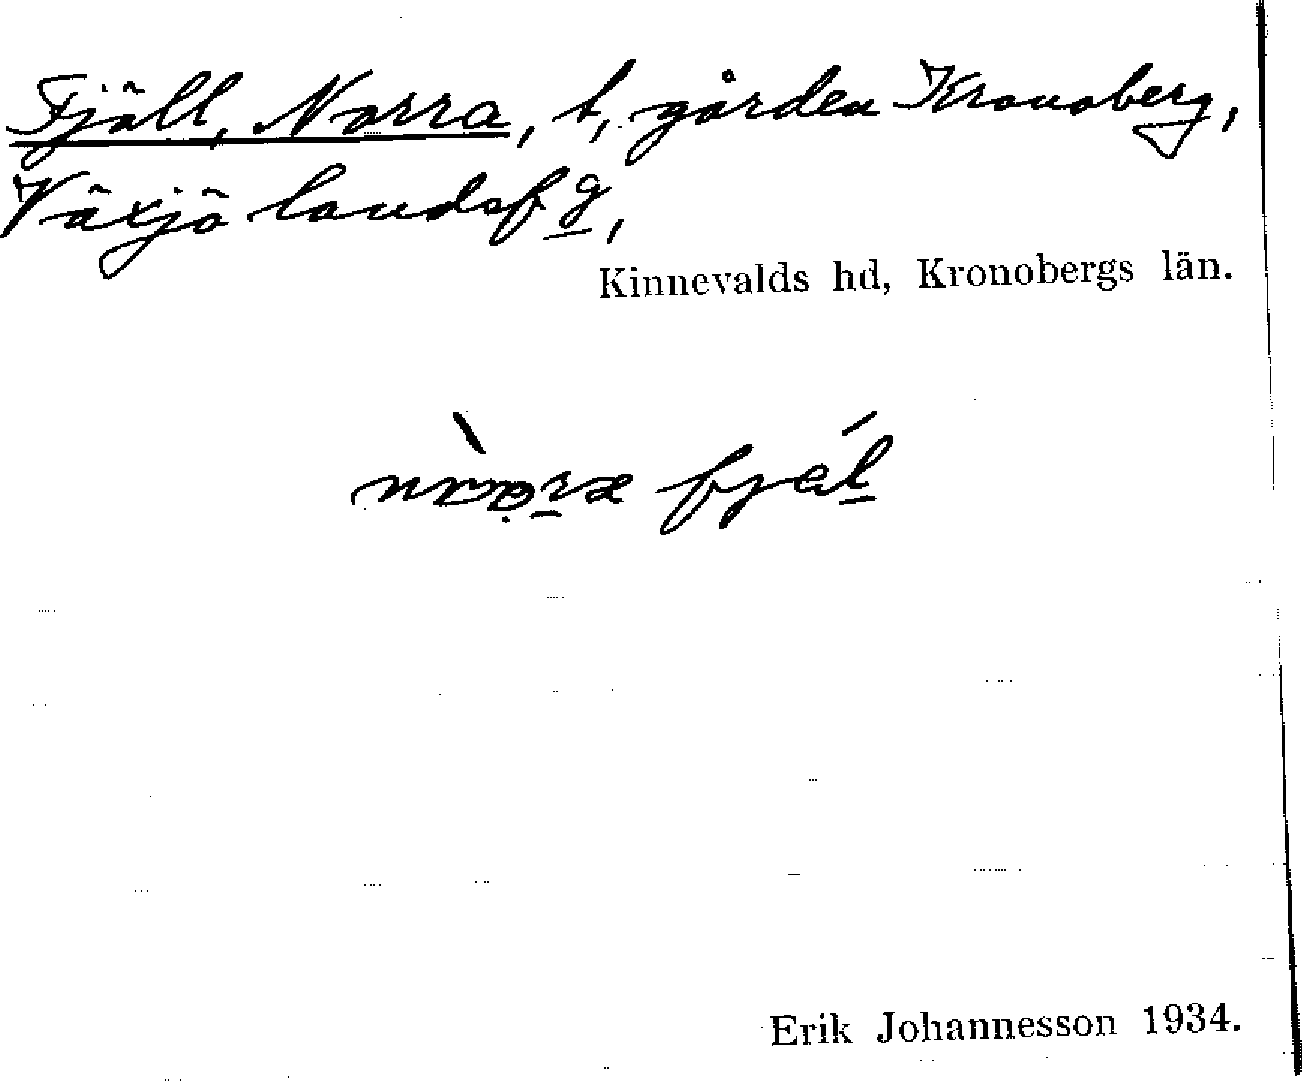 Fjäll, Norra, t, gården Kronoberg,
Växjö landsfg,
Kinnevalds hd, Kronobergs län.
fjäl
Erik Johannesson 1934.